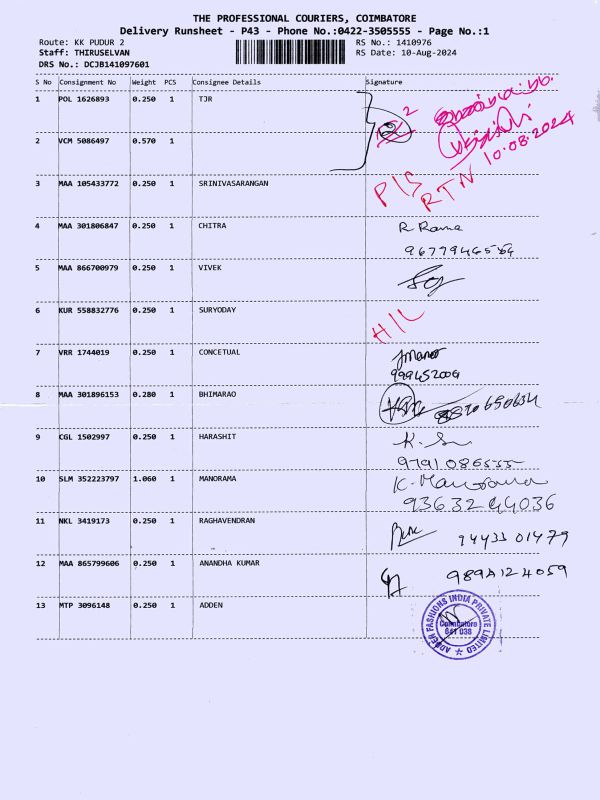 THE PROFESSIONAL COURIERS, COIMBATORE
Delivery Runsheet - P43 - Phone No.:0422-3505555 - Page No.:1
Route: KK PUDUR 2 RS No.: 1410976
Staff: THIRUSELVAN RS Date: 10-Aug-2024
DRS No.: DCJB141097601
S No Consignment No Weight PCS Consignee Details Signature
1 POL 1626893 0.250 1 TJR 2
10.08.2024
2 VCM 5086497 0.570 1
3 MAA 105433772 0.250 1 SRINIVASARANGAN P/S RTN
4 MAA 301806847 0.250 1 CHITRA R Rama
5 MAA 866700979 0.250 1 VIVEK
6 KUR 558832776 0.250 1 SURYODAY H/L
7 VRR 1744019 0.250 1 CONCETUAL
8 MAA 301896153 0.280 1 BHIMARAO
9 CGL 1502997 0.250 1 HARASHIT
9791086555
10 SLM 352223797 1.060 1 MANORAMA K. Manorama
9363244036
11 NKL 3419173 0.250 1 RAGHAVENDRAN 9443301479
12 MAA 865799606 0.250 1 ANANDHA KUMAR 9894124059
13 MTP 3096148 0.250 1 ADDEN
ADDEN FASHIONS INDIA PRIVATE LIMITED
Coimbatore
641 038